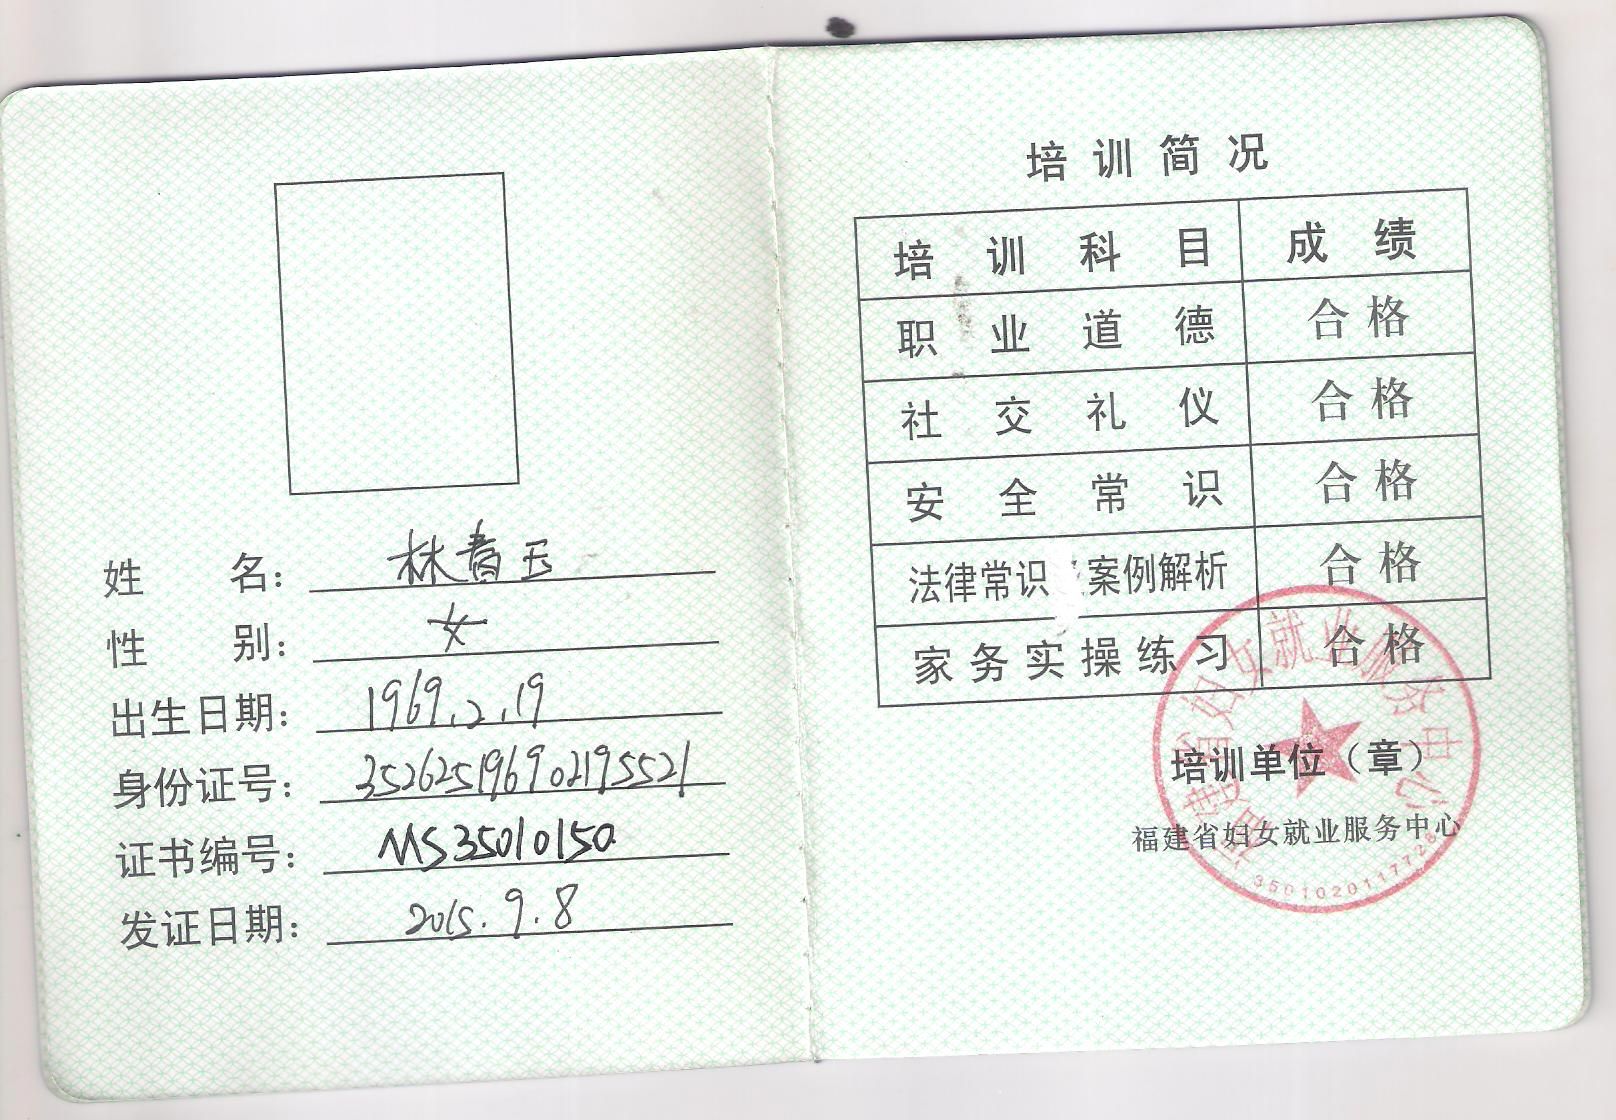 姓名：林春玉
性别：女
出生日期：1969.2.19
身份证号：352625196902195521
证书编号：MS35010150
发证日期：2015.9.8
培训简况
培训科目 成绩
职业道德 合格
社交礼仪 合格
安全常识 合格
法律常识 案例解析 合格
家务实操练习 合格
培训单位（章）
福建省妇女就业服务中心
福建省妇女就业服务中心